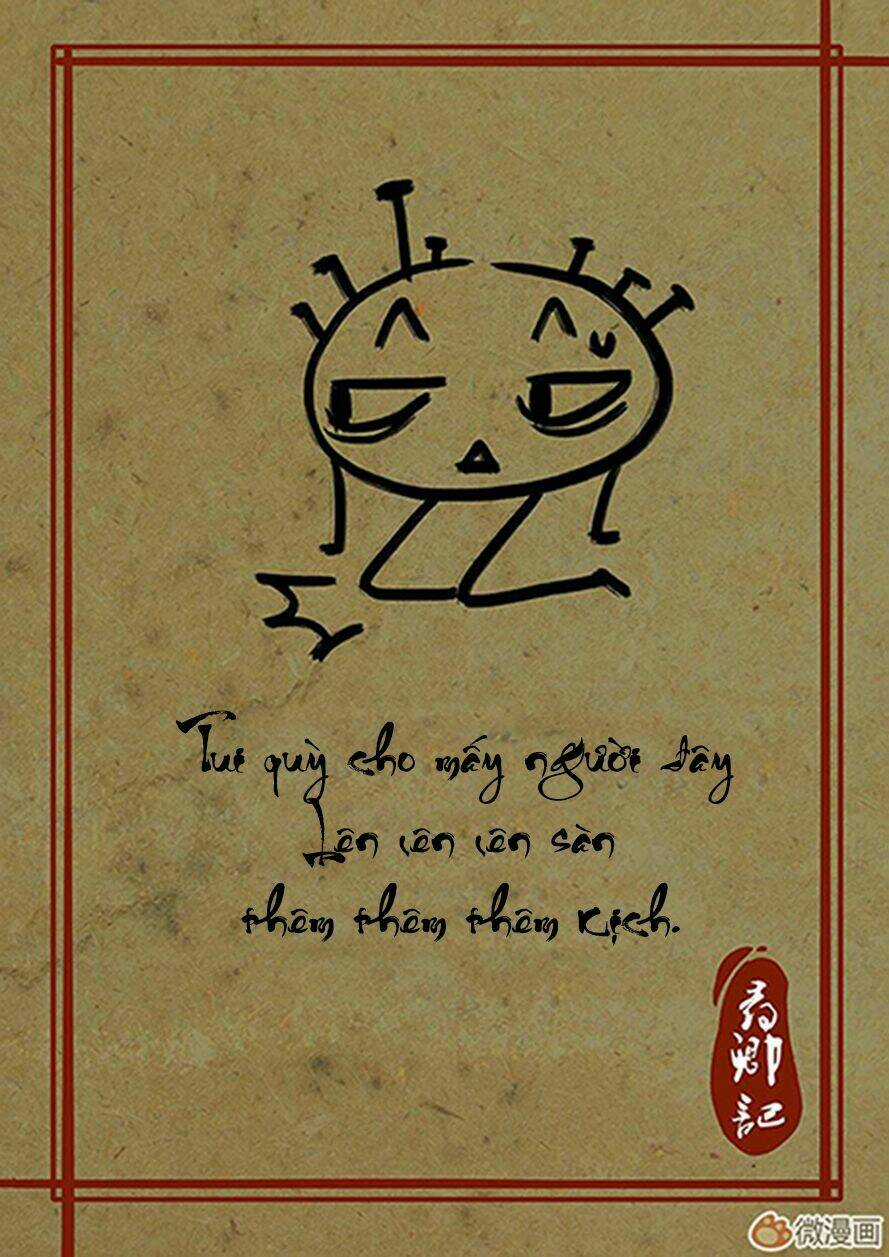 Tui quỳ cho mấy người đây
Lên lên lên sàn
thêm thêm thêm kịch.
尋卿記
微漫画